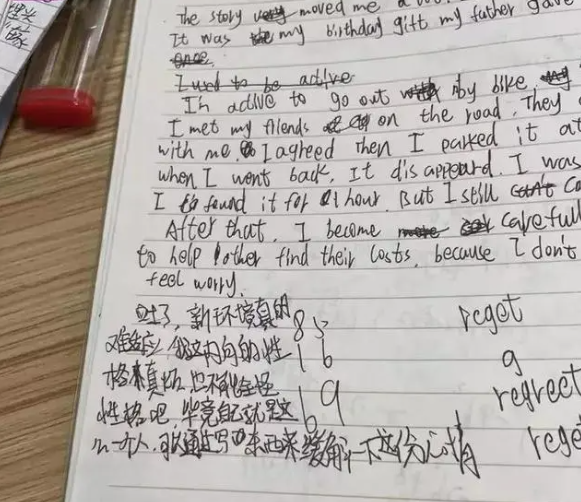 The story moved me a
It was my birthday gift my father gave
once.
I used to be active
In active to go out by bike
I met my friends on the road. They
with me. I agreed then I parked it at
when I went back, It disappeard. I was
I found it for 1 hour. But I still can't
After that, I become carefull
to help other find their losts, because I don't
feel worry.
新环境真的 85 reget
难适应, 我这内向的性 16 g
格来真的, 也不能全怪 19 regreet
性格吧, 毕竟自己就是这 6 rege
么一个人, 可以通过写东西来缓解一下这份心情